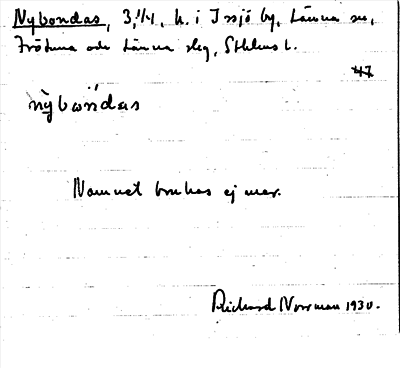 Nybondas, 3:1/4, h. i Issjö by, Länna sn,
Frötuna och Länna slg, Sthlms l.
47
nỳbo̊ńdas
Namnet brukas ej mer.
Richard Norrman 1930.